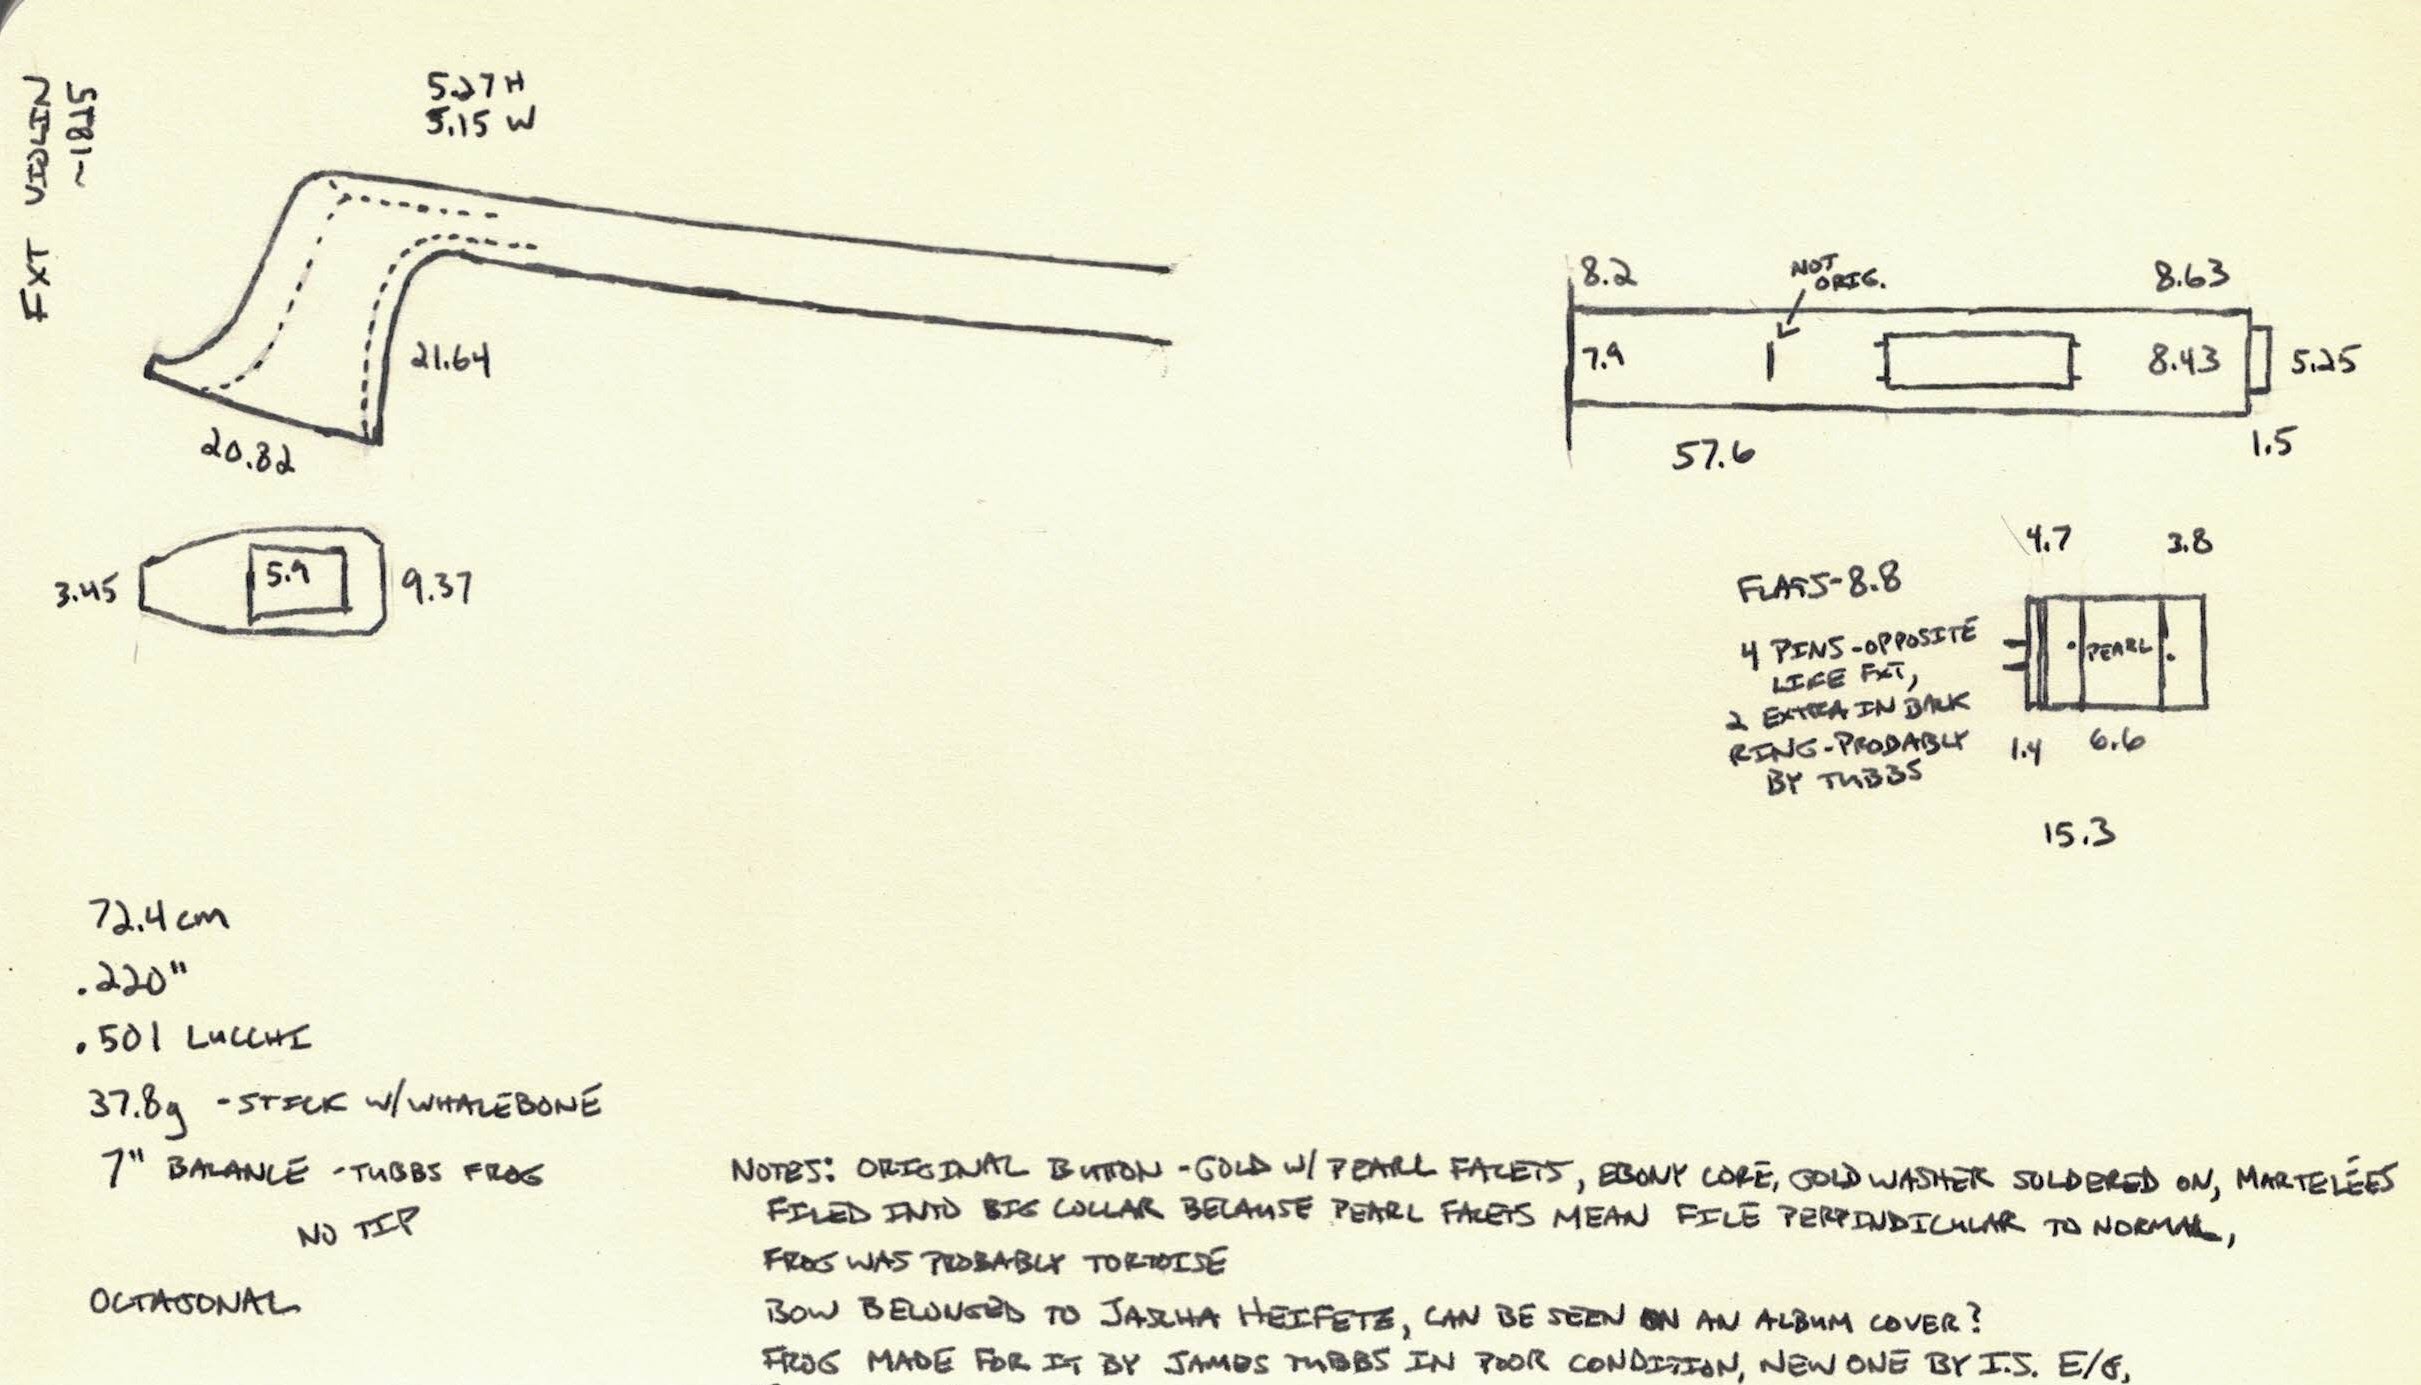 FXT VIOLIN
~1825
5.27 H
5.15 W
21.64
20.82
3.45
5.9
9.37
8.2
NOT
ORIG.
8.63
7.9
8.43
5.25
57.6
1.5
4.7
3.8
FLATS-8.8
4 PINS-OPPOSITE
LIKE FXT,
2 EXTRA IN BACK
RING-PROBABLY
BY TUBBS
PEARL
1.4
6.6
15.3
72.4 cm
.220"
.501 LUCCHI
37.8g -STICK W/WHALEBONE
7" BALANCE -TUBBS FROG
NO TIP
OCTAGONAL
NOTES: ORIGINAL BUTTON -GOLD W/ PEARL FACETS, EBONY CORE, GOLD WASHER SOLDERED ON, MARTELÉES
FILED INTO BIG COLLAR BECAUSE PEARL FACETS MEAN FILE PERPINDICULAR TO NORMAL,
FROG WAS PROBABLY TORTOISE
BOW BELONGED TO JASCHA HEIFETZ, CAN BE SEEN ON AN ALBUM COVER?
FROG MADE FOR IT BY JAMES TUBBS IN POOR CONDITION, NEW ONE BY I.S. E/G,